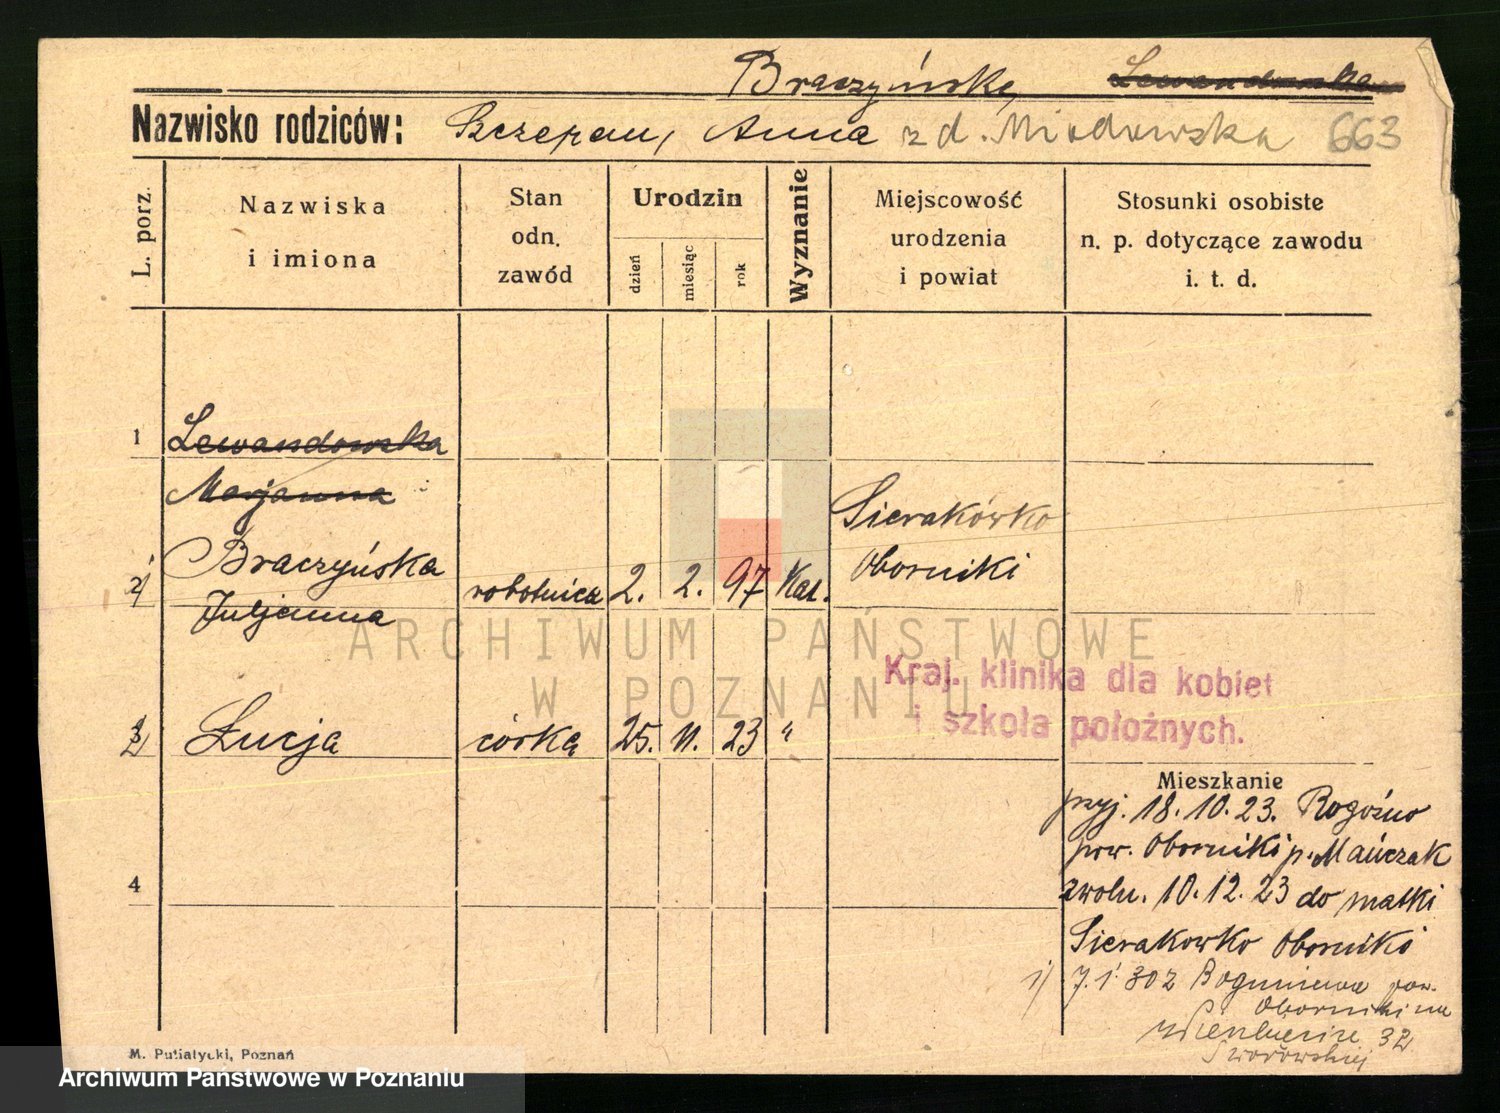 Braczyńska Lewandowska
Nazwisko rodziców: Szczepan, Anna z d. Miodowska 663
L. porz.
Nazwiska
i imiona
Stan
odn.
zawód
Urodzin
dzień
miesiąc
rok
Wyznanie
Miejscowość
urodzenia
i powiat
Stosunki osobiste
n. p. dotyczące zawodu
i. t. d.
1 Lewandowska
Marjanna
Sierakówko
2/ 1 Braczyńska robotnica 2. 2. 97 Kat. Oborniki
Juljanna
ARCHIWUM PAŃSTWOWE
W POZNANIU
Kraj. klinika dla kobiet
i szkoła położnych.
3 2 Łucja córka 25. 11. 23 "
Mieszkanie
przyj. 18. 10. 23. Rogoźno
pow. Oborniki p. Mańczak
4
zwoln. 10. 12. 23 do matki
Sierakowko Oborniki
1) 7. 1. 302 Boguniewo pow.
Oborniki na
32
M. Putiatycki, Poznań
Archiwum Państwowe w Poznaniu